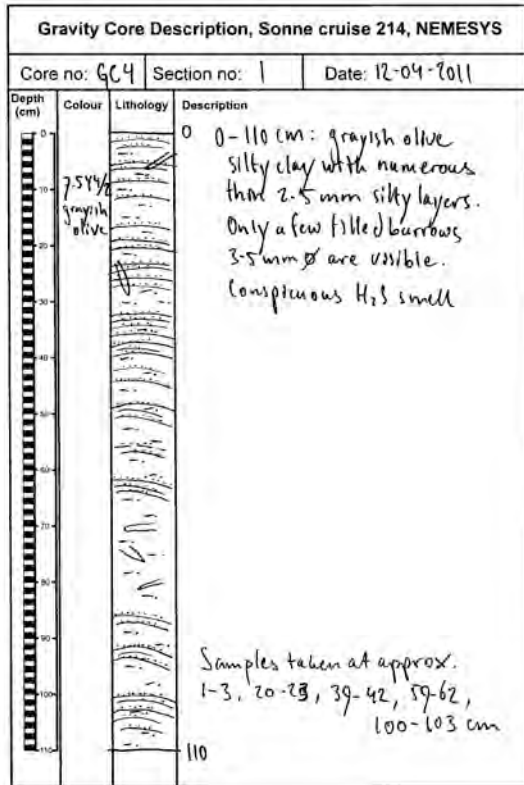 Gravity Core Description, Sonne cruise 214, NEMESYS
Core no: GC4 Section no: 1 Date: 12-04-2011
Depth (cm) Colour Lithology Description
0
10
20
30
40
50
60
70
80
90
100
110
7.5Y4/2
grayish
olive
0
0-110 cm: grayish olive
silty clay with numerous
thin 2-5 mm silty layers.
Only a few filled burrows
3-5 mm ø are visible.
Conspicuous H2S smell
Samples taken at approx.
1-3, 20-23, 39-42, 59-62,
100-103 cm
110